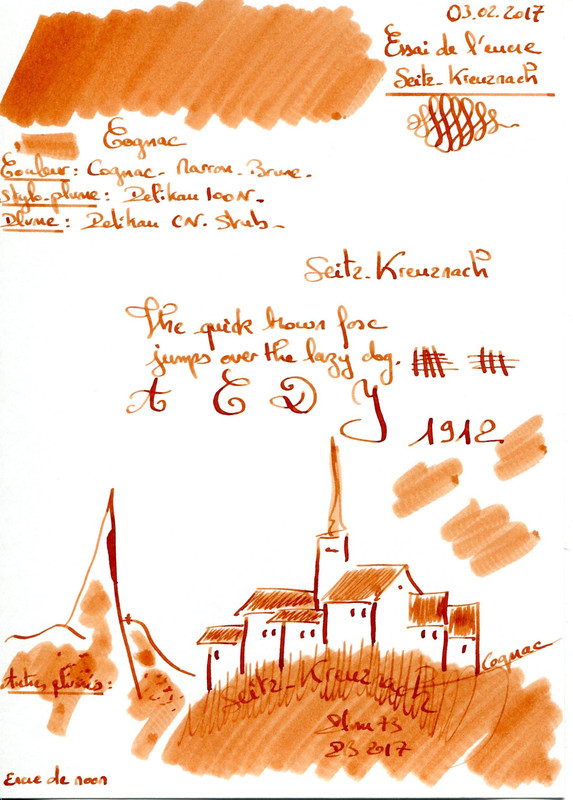 03.02.2017
Essai de l'encre
Seitz-Kreuznach
Cognac
Couleur: Cognac. Marron. Brune.
Stylo-plume: Pelikan 100N.
Plume: Pelikan CN. Stub.
Seitz-Kreuznach
The quick brown fox
jumps over the lazy dog.
A E D Y
1912
Cognac
Autres plumes:
Seitz-Kreuznach
2017
Encre de noon